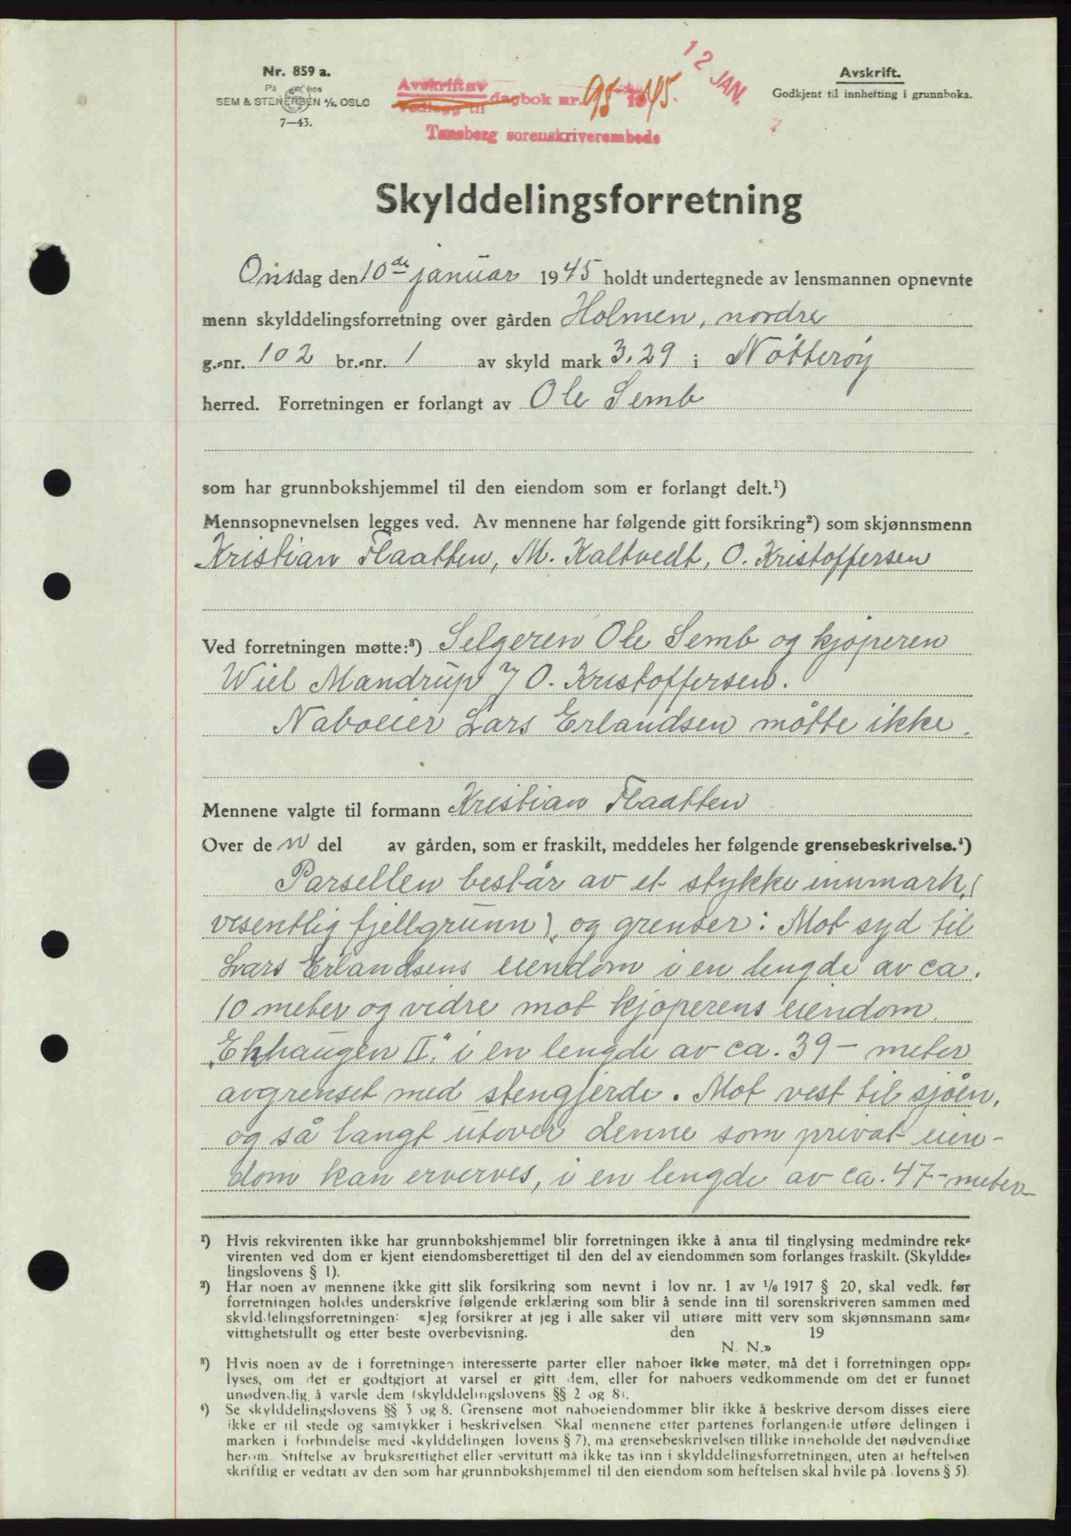 Nr. 859 a.
På lager hos
SEM & STENERSEN A/S, OSLO
7—43.
Avskrift av
vedlegg til
dagbok nr. 95 1945.
Tønsberg sorenskriverembede
12 JAN.
Avskrift.
Godkjent til innhefting i grunnboka.
Skylddelingsforretning
Onsdag den 10de januar 1945 holdt undertegnede av lensmannen opnevnte
menn skylddelingsforretning over gården Holmen, nordre
g.-nr. 102 br.-nr. 1 av skyld mark 3.29 i Nøtterøy
herred. Forretningen er forlangt av Ole Semb
som har grunnbokshjemmel til den eiendom som er forlangt delt.¹)
Mennsopnevnelsen legges ved. Av mennene har følgende gitt forsikring²) som skjønnsmenn
Kristian Flaatten, M. Kaltvedt, O. Kristoffersen
Ved forretningen møtte:³) Selgeren Ole Semb og kjøperen
Wiel Mandrup O. Kristoffersen.
Naboeier Lars Erlandsen møtte ikke.
Mennene valgte til formann Kristian Flaatten
Over den del av gården, som er fraskilt, meddeles her følgende grensebeskrivelse.⁴)
Parsellen består av et stykke innmark, (
vesentlig fjellgrunn), og grenser: Mot syd til
Lars Erlandsens eiendom i en lengde av ca.
10 meter og vidre mot kjøperens eiendom
„Ekhaugen II." i en lengde av ca. 39 — meter
avgrenset med stengjerde. Mot vest til sjøen,
og så langt utover denne som privat eien-
dom kan erverves, i en lengde av ca. 47- meter
¹) Hvis rekvirenten ikke har grunnbokshjemmel blir forretningen ikke å anta til tinglysing medmindre rek-
virenten ved dom er kjent eiendomsberettiget til den del av eiendommen som forlanges fraskilt. (Skyldde-
lingslovens § 1).
²) Har noen av mennene ikke gitt slik forsikring som nevnt i lov nr. 1 av 1/6 1917 § 20, skal vedk. før
forretningen holdes underskrive følgende erklæring som blir å sende inn til sorenskriveren sammen med
skylddelingsforretningen: «Jeg forsikrer at jeg i alle saker vil utføre mitt verv som skjønnsmann sam-
vittighetsfullt og etter beste overbevisning. den 19
N. N.»
³) Hvis noen av de i forretningen interesserte parter eller naboer ikke møter, må det i forretningen opp-
lyses, om det er godtgjort at varsel er gitt dem, eller for naboers vedkommende om det er funnet
unødvendig å varsle dem (skylddelingslovens §§ 2 og 8).
⁴) Se skylddelingslovens §§ 3 og 8. Grensene mot naboeiendommer blir ikke å beskrive dersom disses eiere
ikke er til stede og samtykker i beskrivelsen. Skal mennene etter partenes forlangende utføre delingen i
marken i forbindelse med skylddelingen (lovens § 7), må grensebeskrivelsen tillike inneholde det nødvendige
herom. Stiftelse av bruksrettighet eller servitutt må ikke tas inn i skylddelingsforretningen, uten at heftelsen
skriftlig er vedtatt av den som har grunnbokshjemmel til den eiendom som heftelsen skal hvile på (lovens § 5).